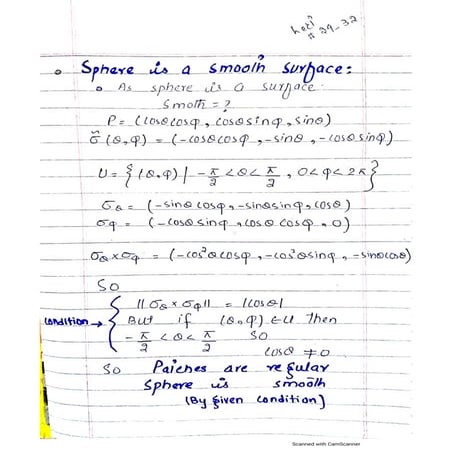 Lec#
# 29-32
Sphere is a smooth surface:
As sphere is a surface.
Smoth = ?
P = (cosθcosφ, cosθsinφ, sinθ)
σ̃(θ,φ) = (-cosθcosφ, -sinθ, -cosθsinφ)
U = {(θ,φ) | -π/2 < θ < π/2, 0<φ<2π}
σθ = (-sinθcosφ, -sinθsinφ, cosθ)
σφ = (-cosθsinφ, cosθcosφ, 0)
σθ×σφ = (-cos²θcosφ, -cos²θsinφ, -sinθcosθ)
So
||σθ×σφ|| = |cosθ|
condition → But if (θ,φ) ∈ U then
-π/2 < θ < π/2 So
cosθ ≠ 0
So Patches are regular
Sphere is smooth
(By given condition)
Scanned with CamScanner